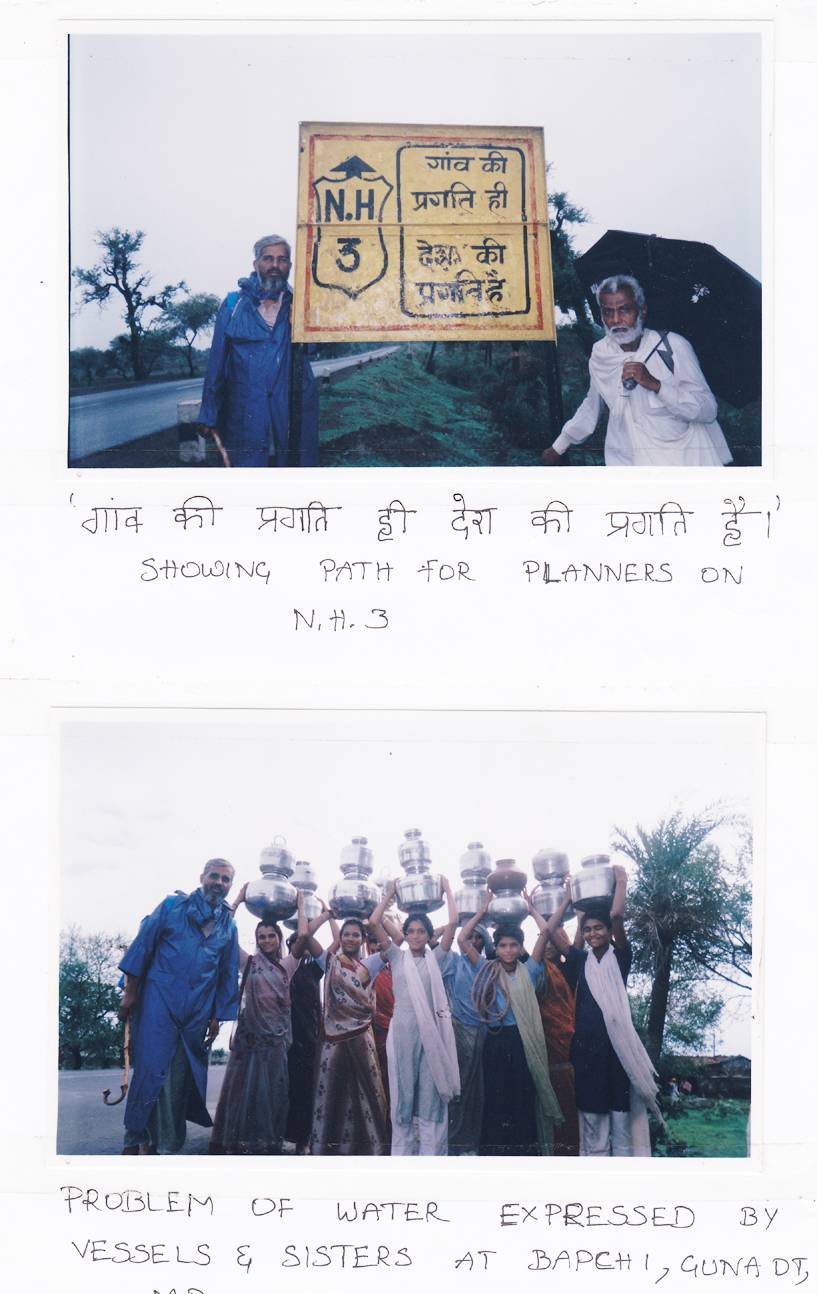 N.H
3
गांव की
प्रगति ही
देश की
प्रगति है
'गांव की प्रगति ही देश की प्रगति है।'
SHOWING PATH FOR PLANNERS ON
N.H. 3
PROBLEM OF WATER EXPRESSED BY
VESSELS & SISTERS AT BAPCHI, GUNA DT,